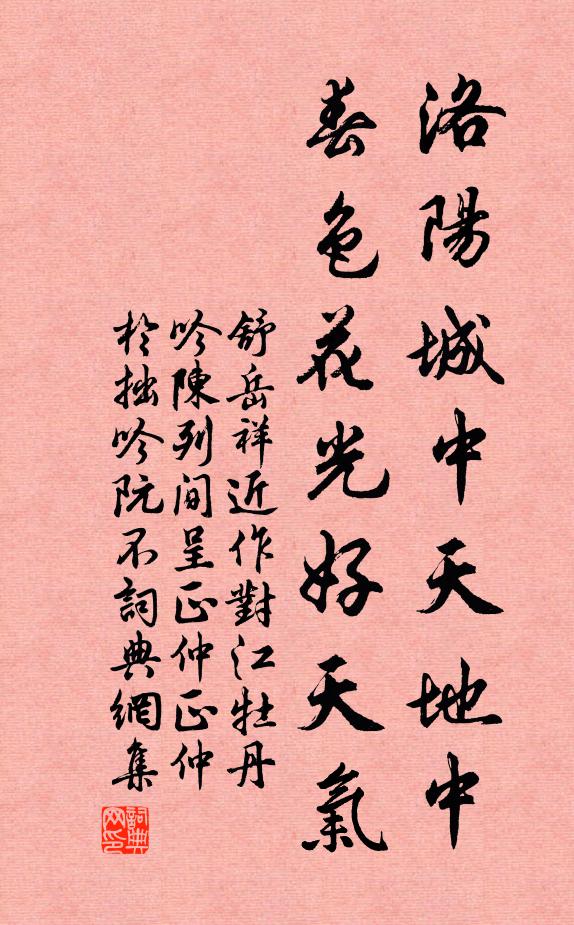 洛陽城中天地中
春色花光好天氣
舒岳祥近作對江牡丹
吟陳列間呈正仲正仲
於拙吟阮不詞典網集
詞典
网印